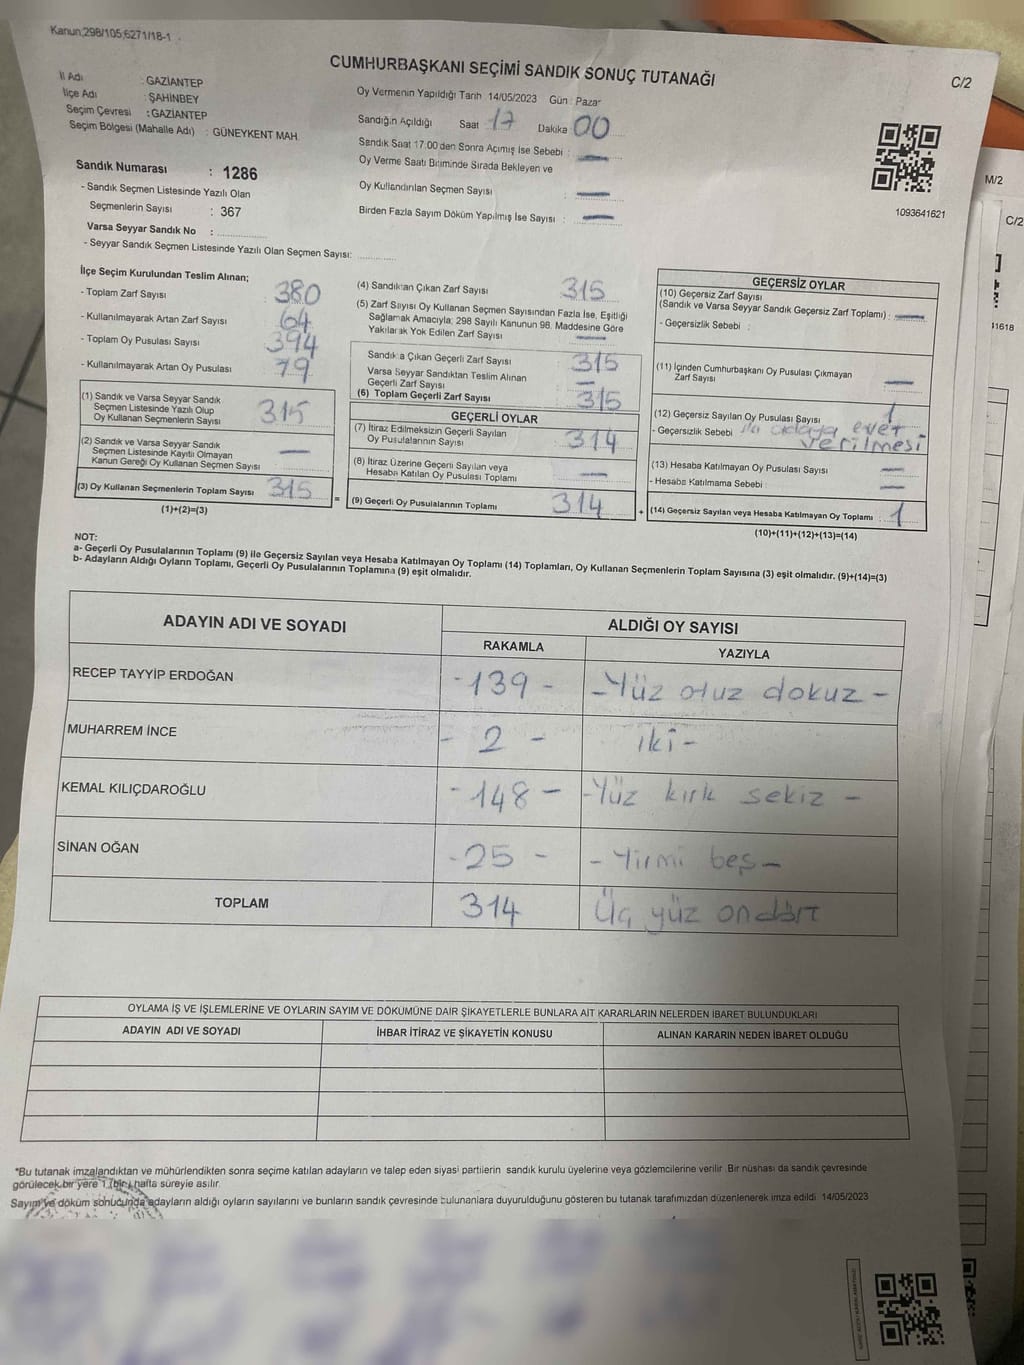 Kanun;298/105;6271/18-1
CUMHURBAŞKANI SEÇİMİ SANDIK SONUÇ TUTANAĞI
C/2
İl Adı : GAZİANTEP
İlçe Adı : ŞAHİNBEY
Seçim Çevresi : GAZİANTEP
Seçim Bölgesi (Mahalle Adı) : GÜNEYKENT MAH.
Sandık Numarası : 1286
- Sandık Seçmen Listesinde Yazılı Olan
Seçmenlerin Sayısı : 367
Varsa Seyyar Sandık No :
- Seyyar Sandık Seçmen Listesinde Yazılı Olan Seçmen Sayısı:
Oy Vermenin Yapıldığı Tarih 14/05/2023 Gün : Pazar
Sandığın Açıldığı Saat 17 Dakika 00
Sandık Saat 17:00 den Sonra Açımış İse Sebebi : —
Oy Verme Saati Bitiminde Sırada Bekleyen ve
Oy Kullandırılan Seçmen Sayısı : —
Birden Fazla Sayım Döküm Yapılmış İse Sayısı : —
1093641621
M/2
C/2
İlçe Seçim Kurulundan Teslim Alınan;
- Toplam Zarf Sayısı 380
- Kullanılmayarak Artan Zarf Sayısı 64
- Toplam Oy Pusulası Sayısı 394
- Kullanılmayarak Artan Oy Pusulası 79
(1) Sandık ve Varsa Seyyar Sandık
Seçmen Listesinde Yazılı Olup
Oy Kullanan Seçmenlerin Sayısı 315
(2) Sandık ve Varsa Seyyar Sandık
Seçmen Listesinde Kayıtlı Olmayan
Kanun Gereği Oy Kullanan Seçmen Sayısı —
(3) Oy Kullanan Seçmenlerin Toplam Sayısı 315
(1)+(2)=(3)
(4) Sandıktan Çıkan Zarf Sayısı 315
(5) Zarf Sayısı Oy Kullanan Seçmen Sayısından Fazla İse, Eşitliği
Sağlamak Amacıyla; 298 Sayılı Kanunun 98. Maddesine Göre
Yakılarak Yok Edilen Zarf Sayısı —
Sandıkta Çıkan Geçerli Zarf Sayısı 315
Varsa Seyyar Sandıktan Teslim Alınan
Geçerli Zarf Sayısı —
(6) Toplam Geçerli Zarf Sayısı 315
GEÇERLİ OYLAR
(7) İtiraz Edilmeksizin Geçerli Sayılan
Oy Pusulalarının Sayısı 314
(8) İtiraz Üzerine Geçerli Sayılan veya
Hesaba Katılan Oy Pusulası Toplamı —
= (9) Geçerli Oy Pusulalarının Toplamı 314 +
GEÇERSİZ OYLAR
(10) Geçersiz Zarf Sayısı
(Sandık ve Varsa Seyyar Sandık Geçersiz Zarf Toplamı) : —
- Geçersizlik Sebebi :
(11) İçinden Cumhurbaşkanı Oy Pusulası Çıkmayan
Zarf Sayısı —
(12) Geçersiz Sayılan Oy Pusulası Sayısı 1
- Geçersizlik Sebebi iki adaya evet
verilmesi
(13) Hesaba Katılmayan Oy Pusulası Sayısı —
- Hesaba Katılmama Sebebi —
(14) Geçersiz Sayılan veya Hesaba Katılmayan Oy Toplamı : 1
(10)+(11)+(12)+(13)=(14)
NOT:
a- Geçerli Oy Pusulalarının Toplamı (9) ile Geçersiz Sayılan veya Hesaba Katılmayan Oy Toplamı (14) Toplamları, Oy Kullanan Seçmenlerin Toplam Sayısına (3) eşit olmalıdır. (9)+(14)=(3)
b- Adayların Aldığı Oyların Toplamı, Geçerli Oy Pusulalarının Toplamına (9) eşit olmalıdır.
ADAYIN ADI VE SOYADI ALDIĞI OY SAYISI
RAKAMLA YAZIYLA
RECEP TAYYİP ERDOĞAN -139- -Yüz otuz dokuz-
MUHARREM İNCE - 2 - iki-
KEMAL KILIÇDAROĞLU -148- -Yüz kırk sekiz -
SİNAN OĞAN -25- -Yirmi beş-
TOPLAM 314 Üç yüz ondört
OYLAMA İŞ VE İŞLEMLERİNE VE OYLARIN SAYIM VE DÖKÜMÜNE DAİR ŞİKAYETLERLE BUNLARA AİT KARARLARIN NELERDEN İBARET BULUNDUKLARI
ADAYIN ADI VE SOYADI İHBAR İTİRAZ VE ŞİKAYETİN KONUSU ALINAN KARARIN NEDEN İBARET OLDUĞU
*Bu tutanak imzalandıktan ve mühürlendikten sonra seçime katılan adayların ve talep eden siyasi partilerin sandık kurulu üyelerine veya gözlemcilerine verilir. Bir nüshası da sandık çevresinde
görülecek bir yere 1 (bir) hafta süreyle asılır.
Sayım ve döküm sonucunda adayların aldığı oyların sayılarını ve bunların sandık çevresinde bulunanlara duyurulduğunu gösteren bu tutanak tarafımızdan düzenlenerek imza edildi 14/05/2023